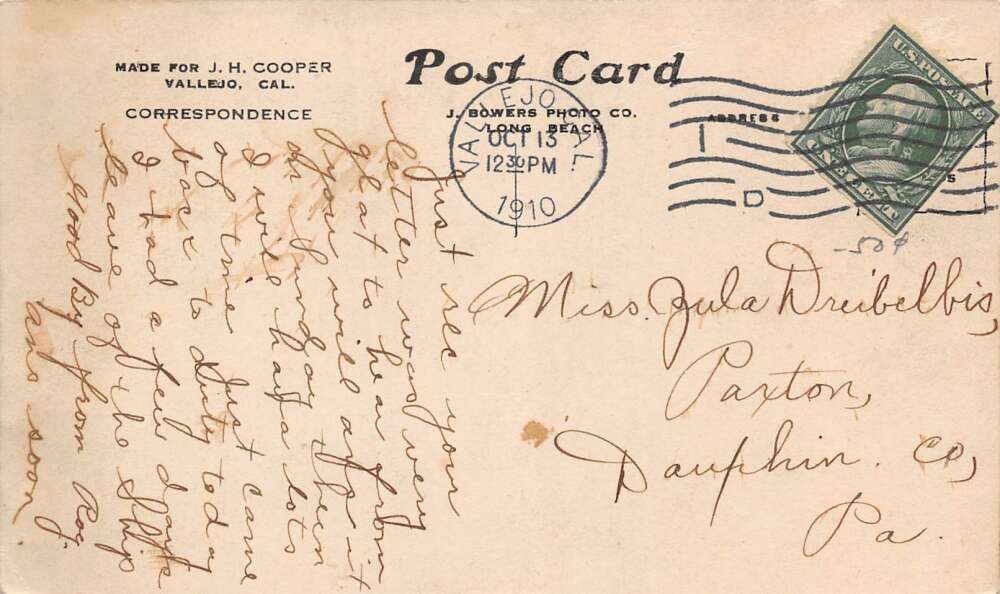 MADE FOR J. H. COOPER
VALLEJO, CAL.
CORRESPONDENCE
Post Card
J. BOWERS PHOTO CO.
LONG BEACH
ADDRESS
VALLEJO CAL.
OCT 13
12 30 PM
1910
D
U.S. POSTAGE
ONE CENT
-50¢
Just rec your
letter was very
glat to hear from
you will ans it
on Sunday then
I will have lots
of time Just came
back to duty today
I had a few days
leave of the Ship
Good By from Roy.
ans soon
Miss. Zula Dreibelbis,
Paxton,
Dauphin. Co,
Pa.